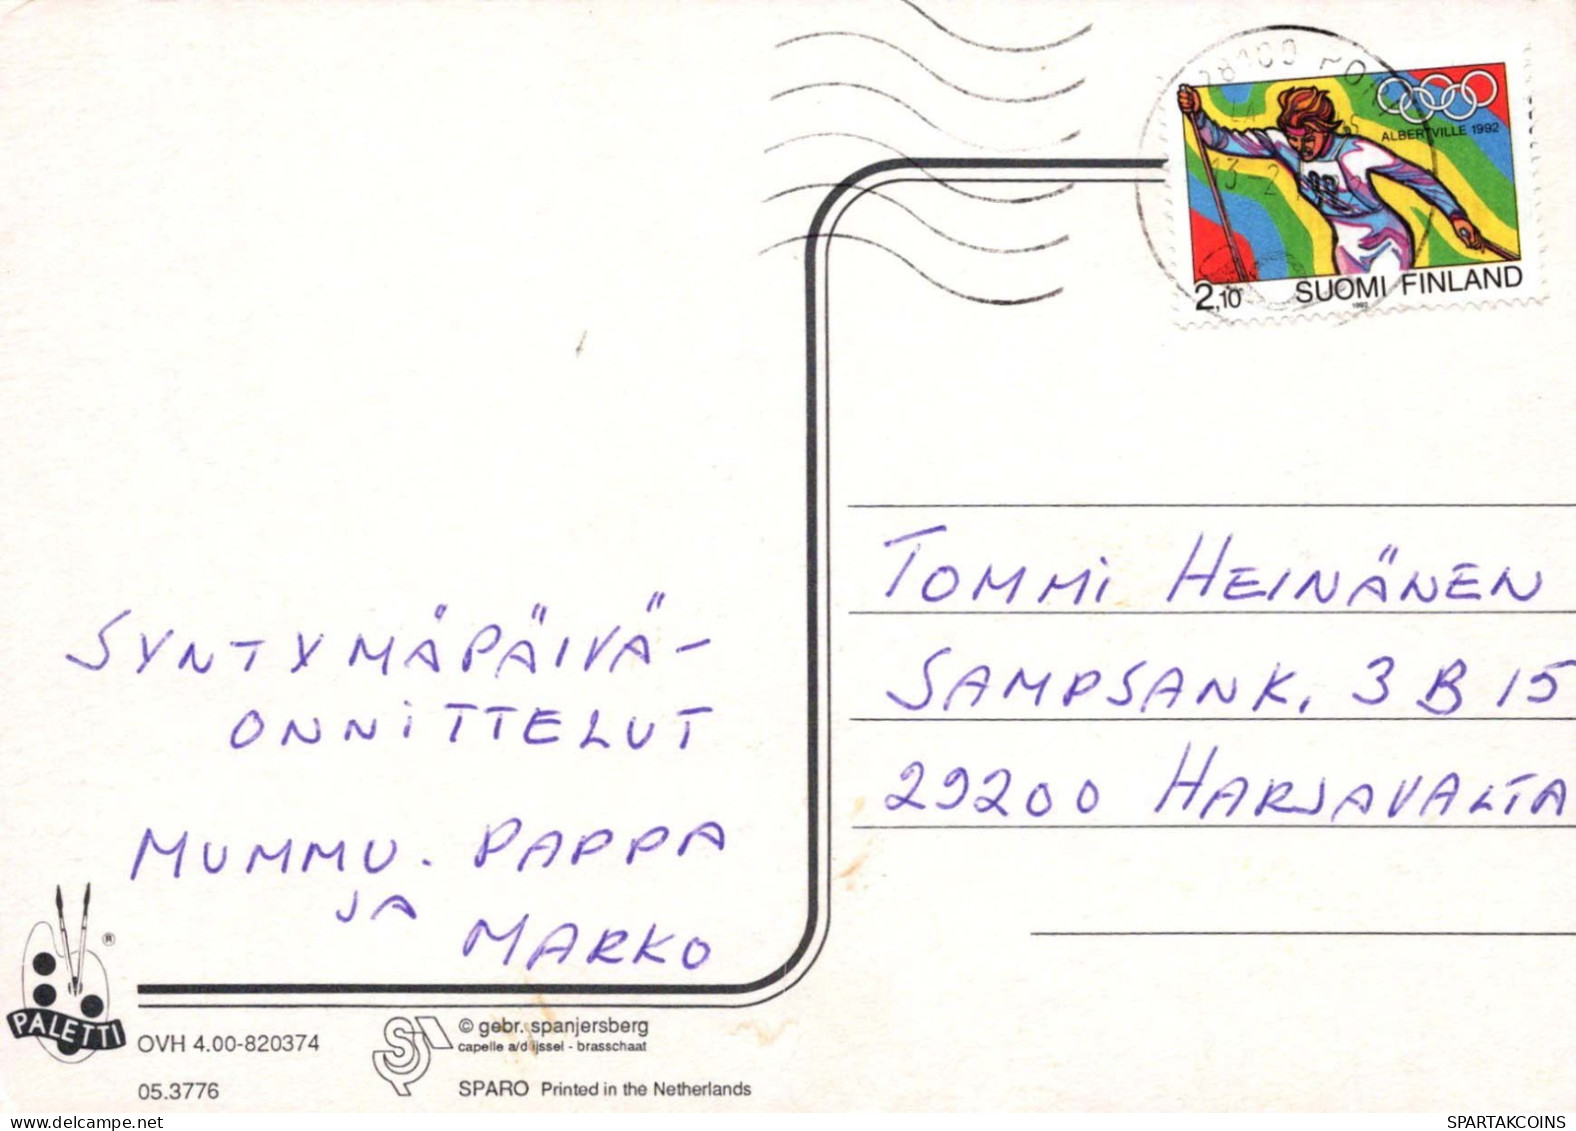 28100 PORI
13. 2
ALBERTVILLE 1992
2,10 SUOMI FINLAND
1992
SYNTYMÄPÄIVÄ-
ONNITTELUT
MUMMU. PAPPA
JA
MARKO
TOMMI HEINÄNEN
SAMPSANK. 3 B 15
29200 HARJAVALTA
PALETTI ®
OVH 4.00-820374
05.3776
© gebr. spanjersberg
capelle a/d ijssel - brasschaat
SPARO Printed in the Netherlands
SPARTAKCOINS